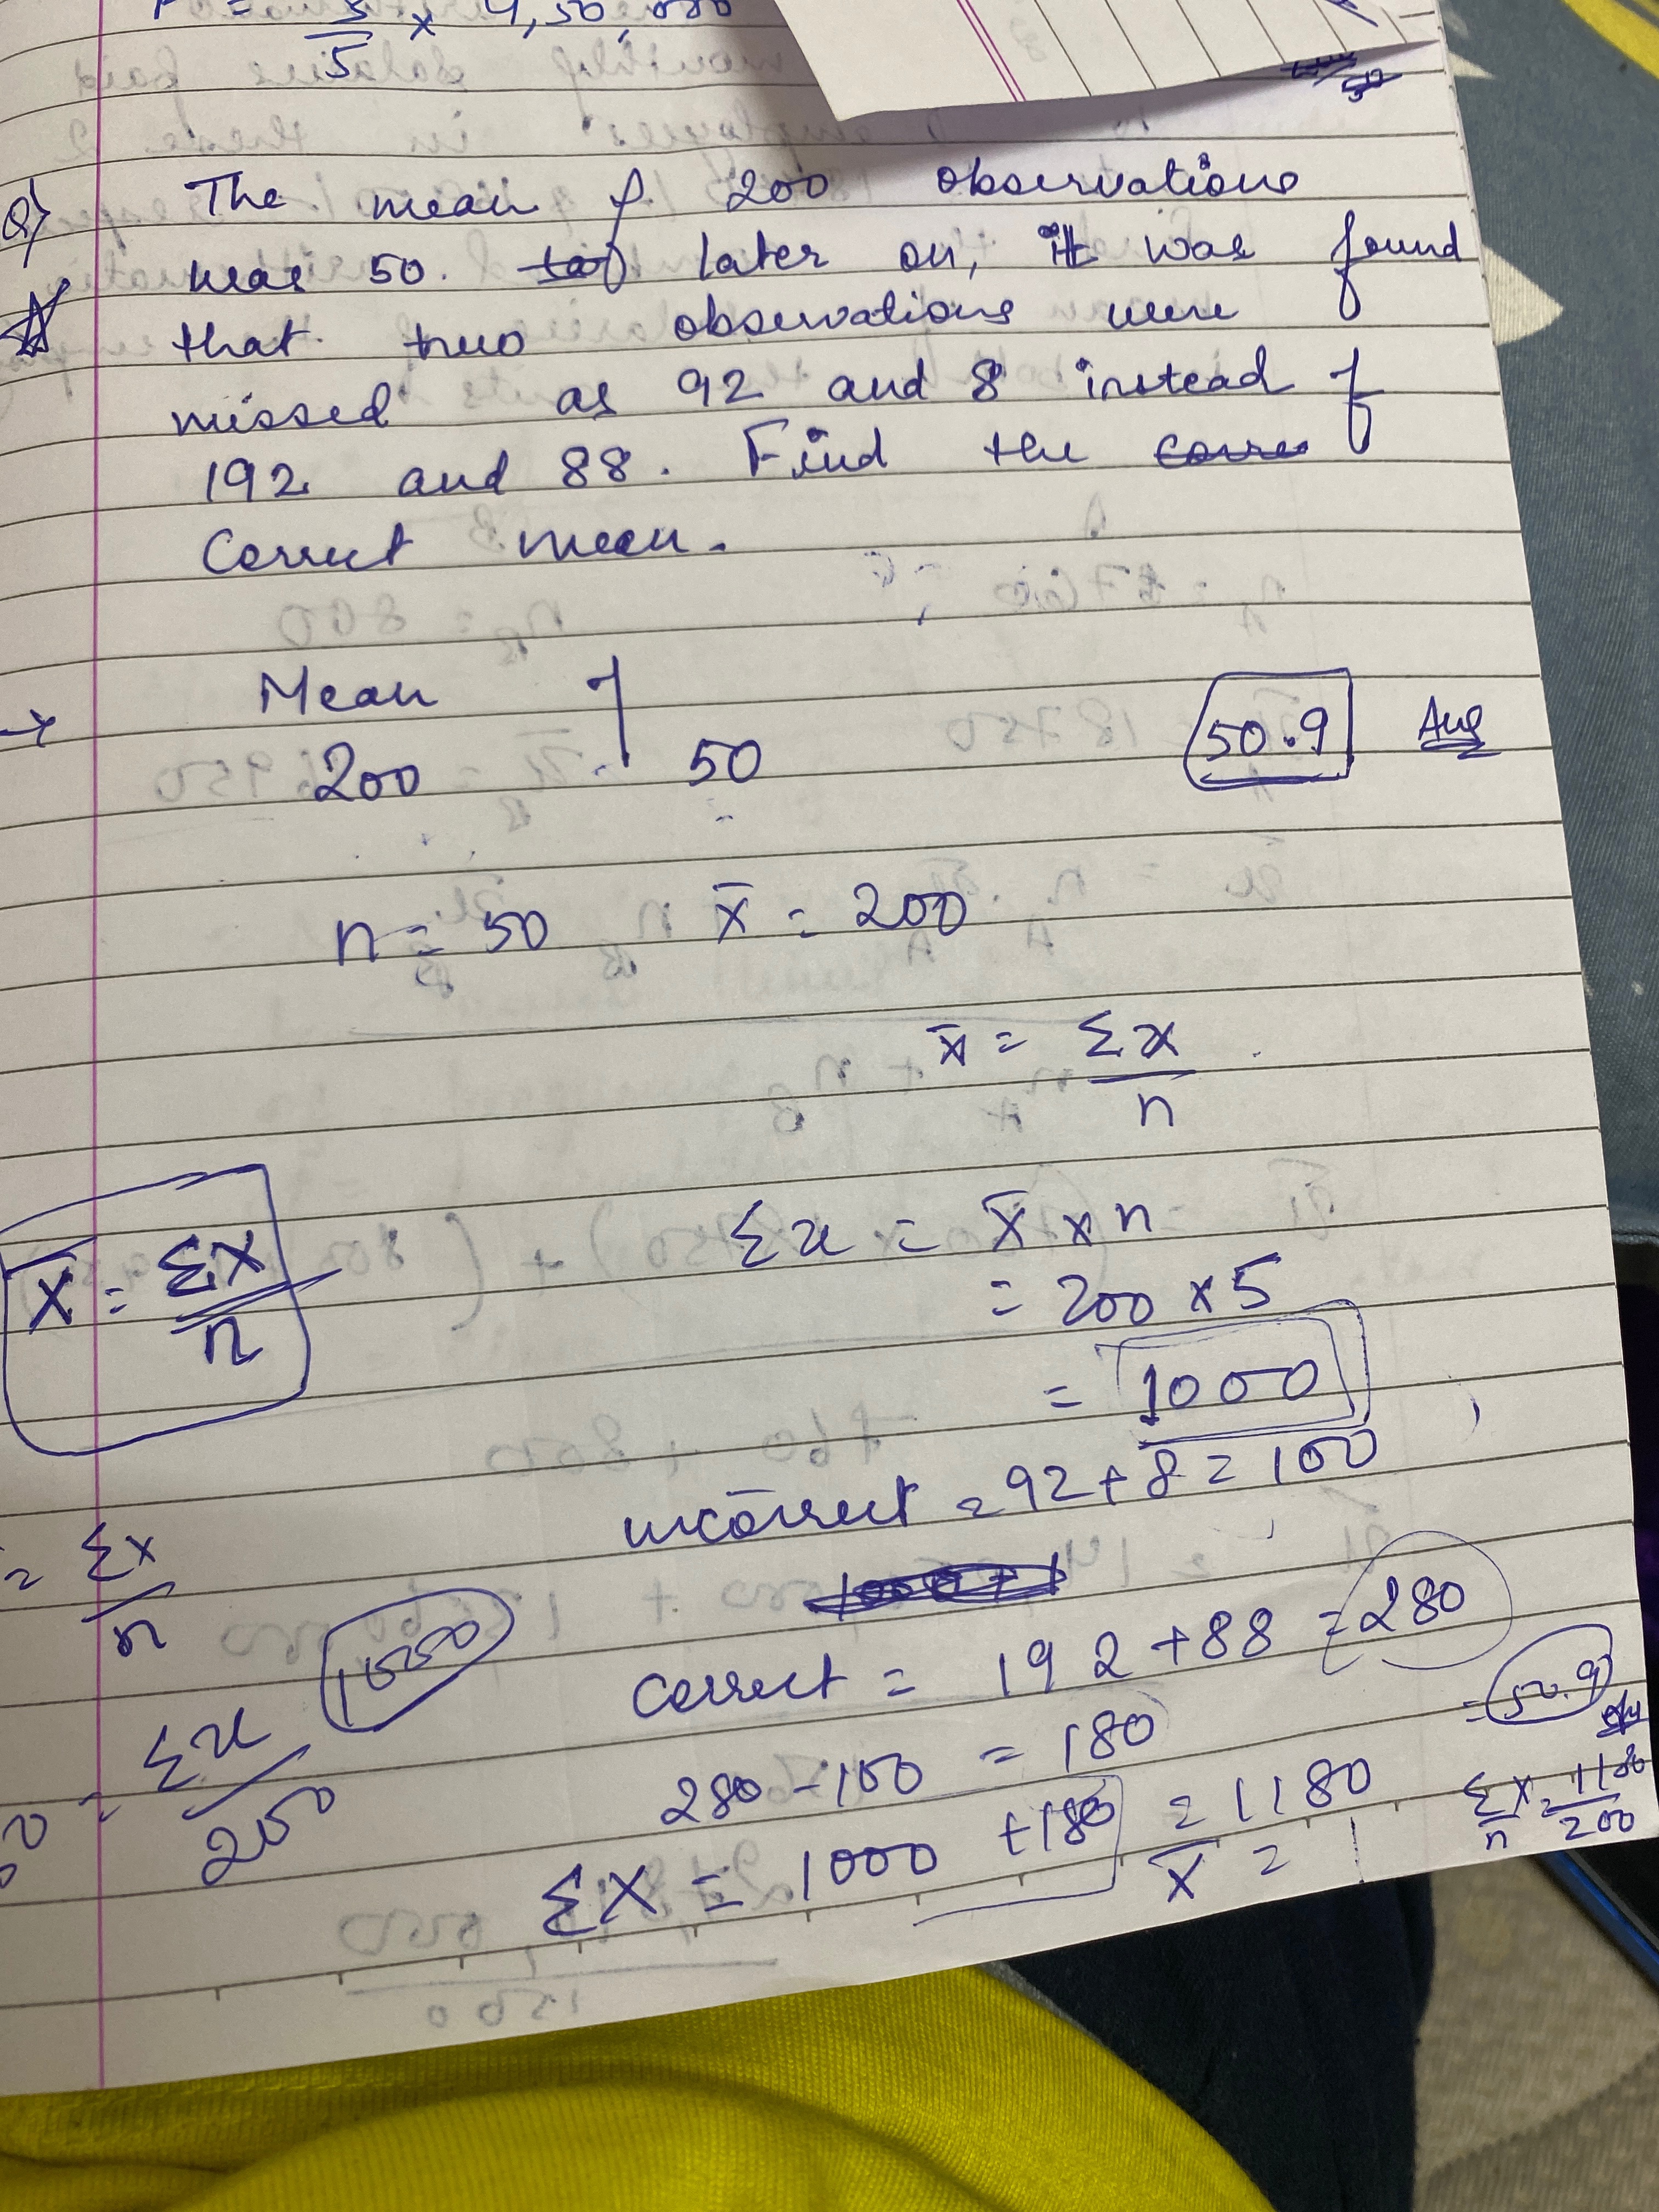 5 × 4,50,000
Q) The mean of 200 observations
was 50. later on, it was found
that two observations were
missed as 92 and 8 instead of
192 and 88. Find the corre
Correct mean.
→ Mean of
200 50
50.9 Ans
n = 50 x̄ = 200
x̄ = Σx
n
Σx = x̄ × n
= 200 × 5
= 1000
X̄ = ΣX
n
incorrect = 92 + 8 = 100
= Σx
n
correct = 192 + 88 = 280
280 - 100 = 180
ΣX = 1000 + 180 = 1180
X̄ =
= Σx
200
= 50.9
Σx = 1180
n 200